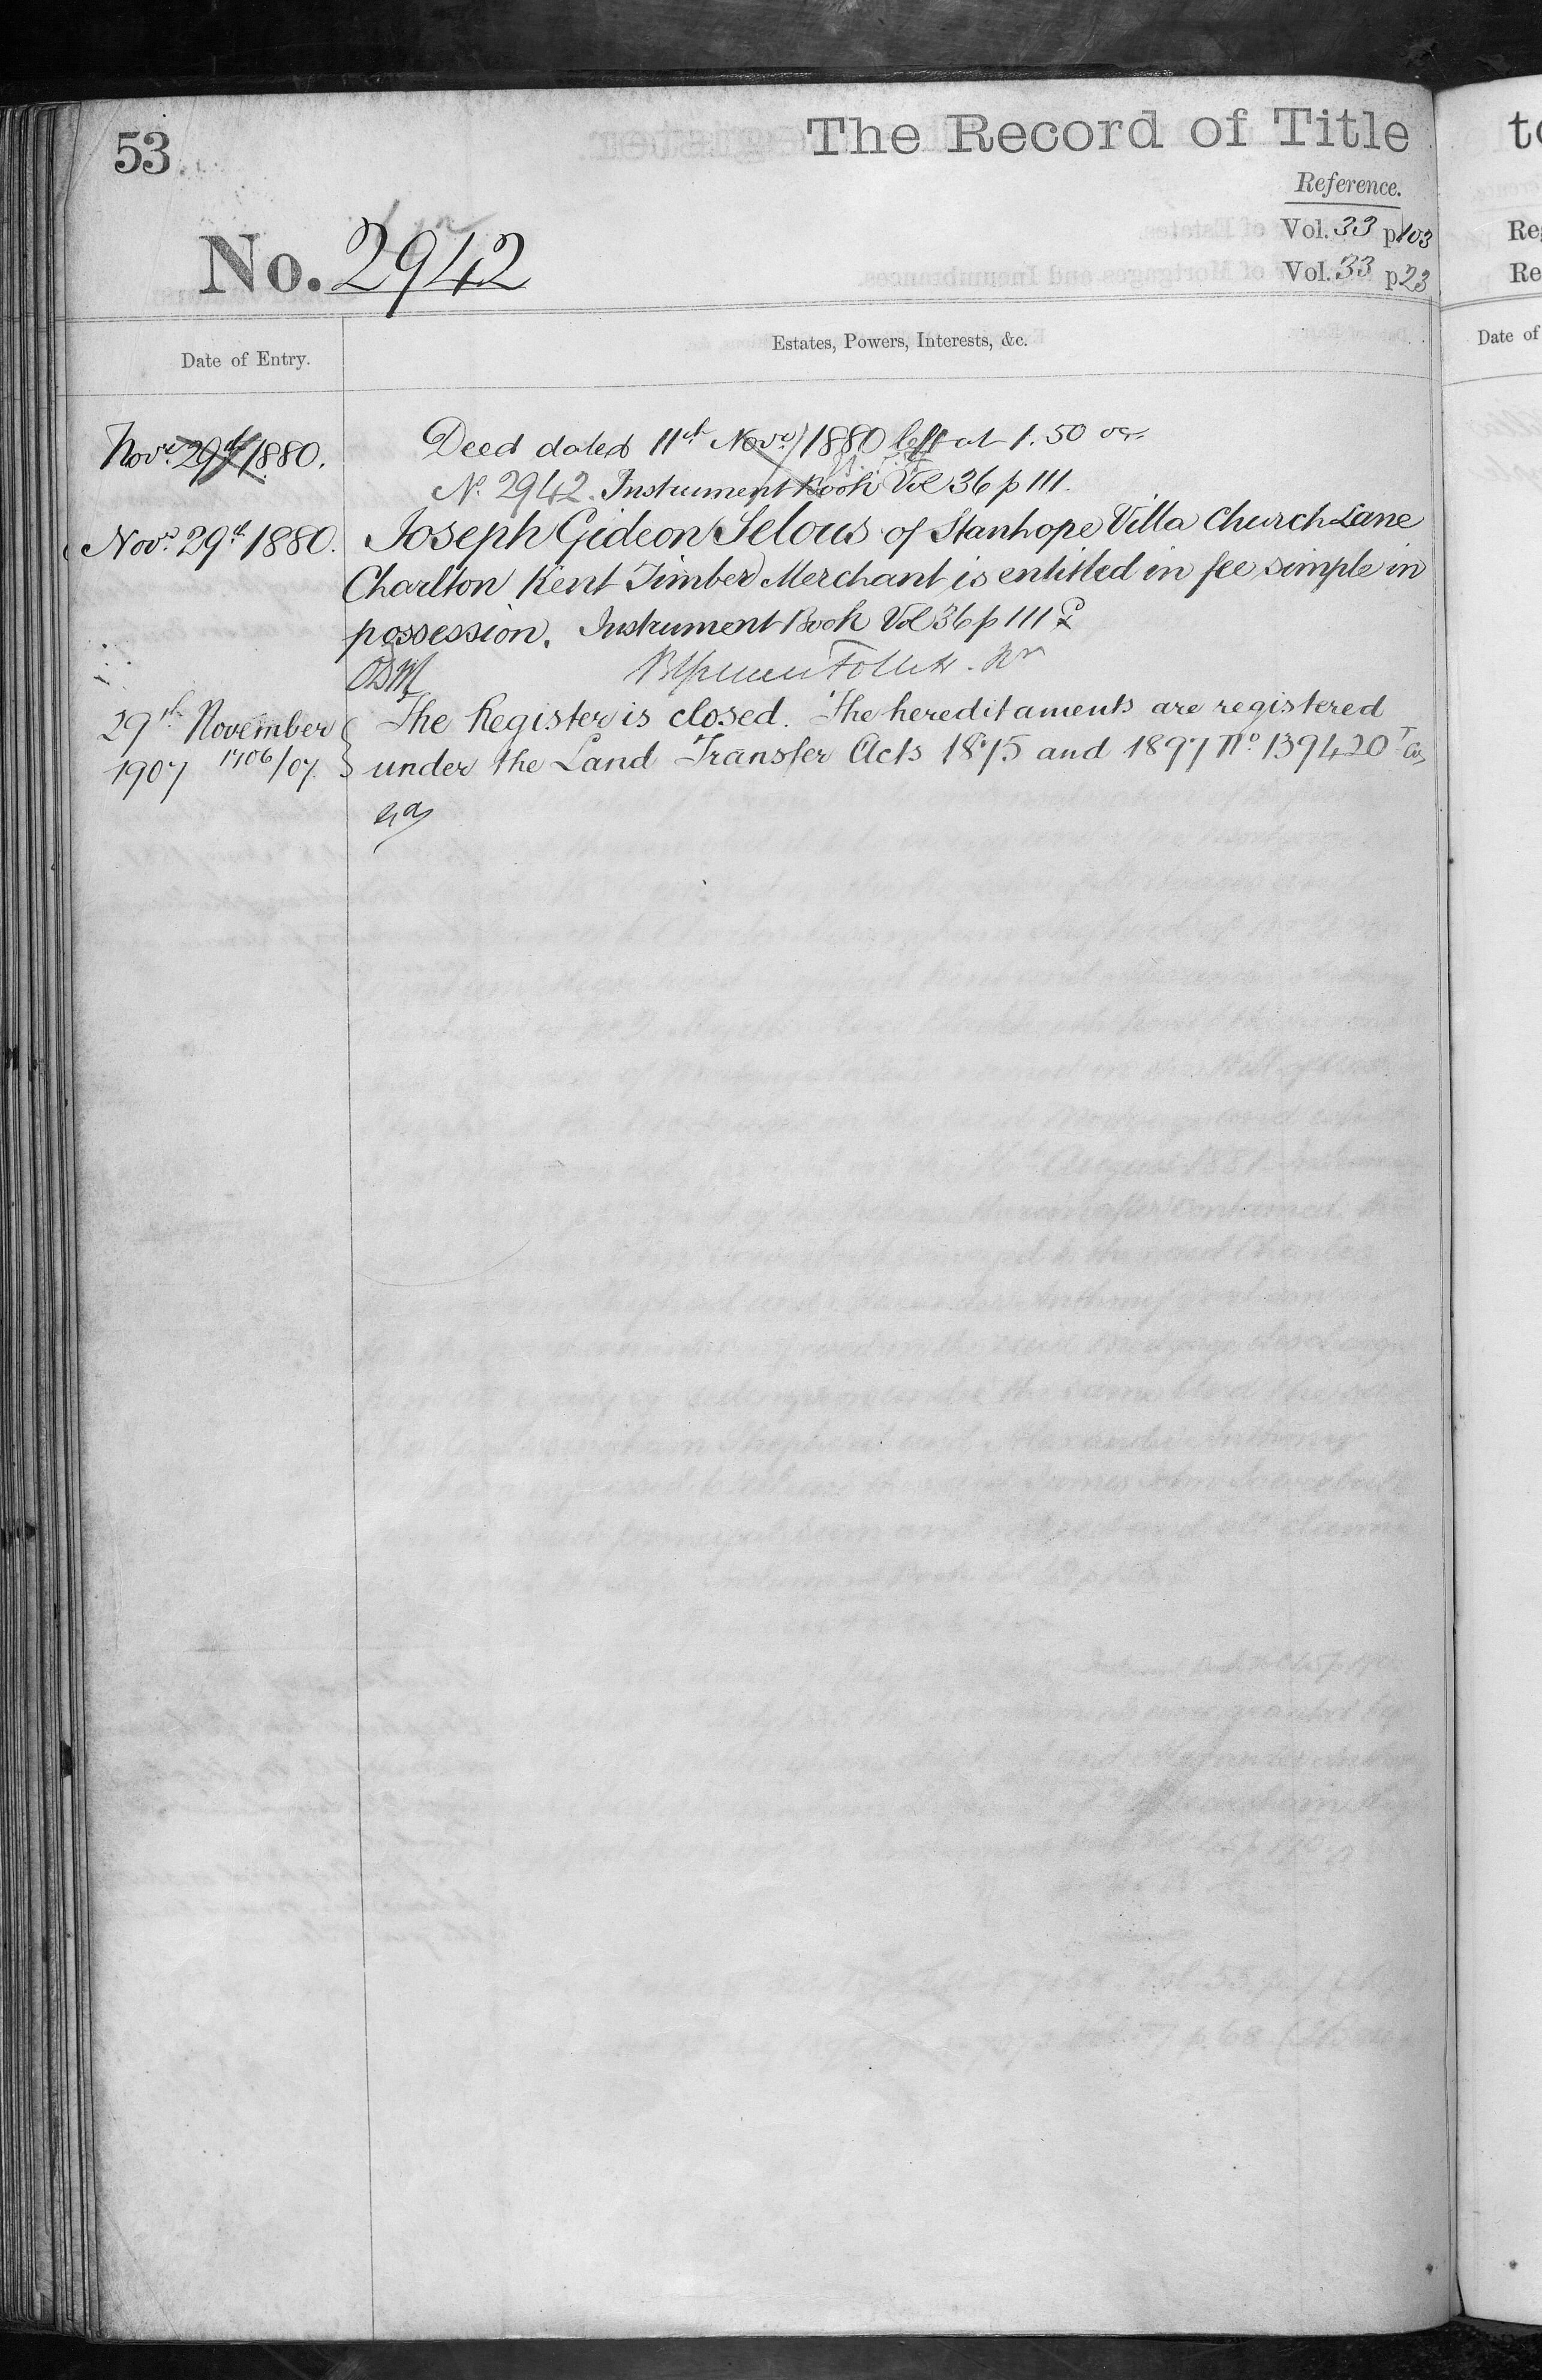 53
The Record of Title
Reference.
No. 2942
Vol. 33 p 103
Vol. 33 p 23
Date of Entry.
Estates, Powers, Interests, &c.
Novr 29th 1880.
Deed dated 11th Novr 1880 left at 1.50
No. 2942. Instrument Book Vol 36 p 111.
Novr 29th 1880.
Joseph Gideon Selous of Stanhope Villa Church Lane
Charlton Kent Timber Merchant is entitled in fee simple in
possession. Instrument Book Vol 36 p 111
Follett
29th November
1907 1706/07.
The Register is closed. The hereditaments are registered
under the Land Transfer Acts 1875 and 1897 No 139420
Re
Re
Date of